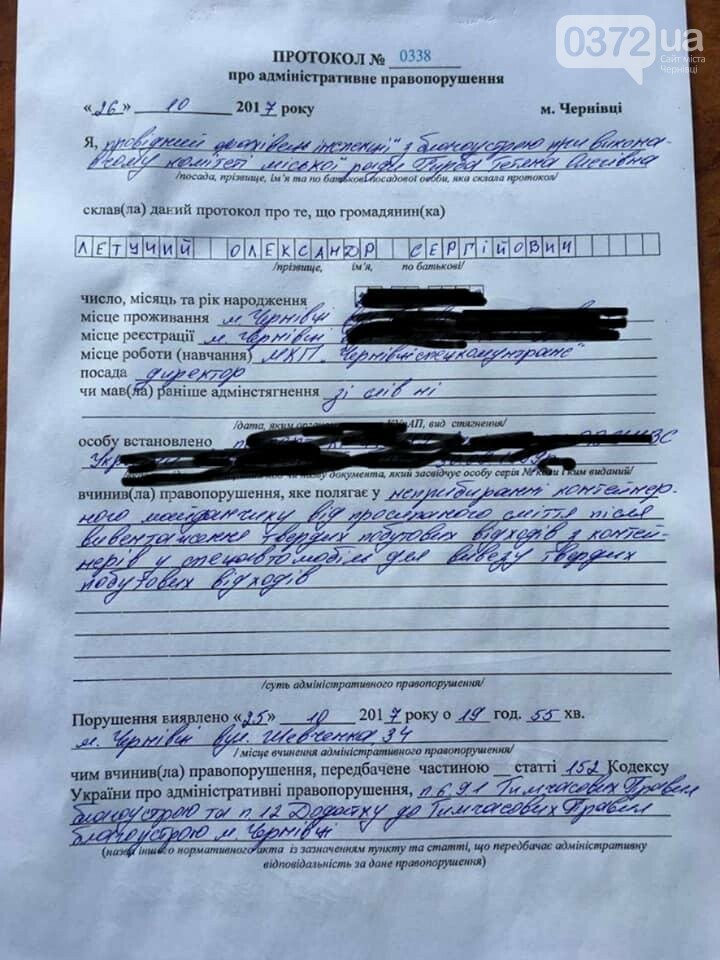 0372.ua
Сайт міста
Чернівці
ПРОТОКОЛ № 0338
про адміністративне правопорушення
«26» 10 2017 року м. Чернівці
Я, провідний фахівець інспекції з благоустрою при викона-
вчому комітеті міської ради Тетяна
/посада, прізвище, ім’я та по батькові посадової особи, яка склала протокол/
склав(ла) даний протокол про те, що громадянин(ка)
ЛЕТУЧИЙ ОЛЕКСАНДР СЕРГІЙОВИЧ
/прізвище, ім’я, по батькові/
число, місяць та рік народження
місце проживання м. Чернівці
місце реєстрації м. Чернівці
місце роботи (навчання) МКП "Чернівціспецкомунтранс"
посада директор
чи мав(ла) раніше адмінстягнення зі слів ні
/дата, яким КУпАП, вид стягнення/
особу встановлено
документа, який засвідчує особу серія № коли і ким виданий/
вчинив(ла) правопорушення, яке полягає у неприбиранні контейнер-
ного майданчику від просипаного сміття після
вивентаження твердих побутових відходів з контей-
нерів у спецавтомобіль для вивезу твердих
побутових відходів
/суть адміністративного правопорушення/
Порушення виявлено «25» 10 2017 року о 19 год. 55 хв.
м. Чернівці вул. Шевченка 34
/ місце вчинення адміністративного правопорушення/
чим вчинив(ла) правопорушення, передбачене частиною _ статті 152 Кодексу
України про адміністративні правопорушення, п.6.9.1 Тимчасових Правил
благоустрою та п.12 Додатку до Тимчасових Правил
благоустрою м. Чернівці
(назва іншого нормативного акта із зазначенням пункту та статті, що передбачає адміністративну
відповідальність за дане правопорушення)